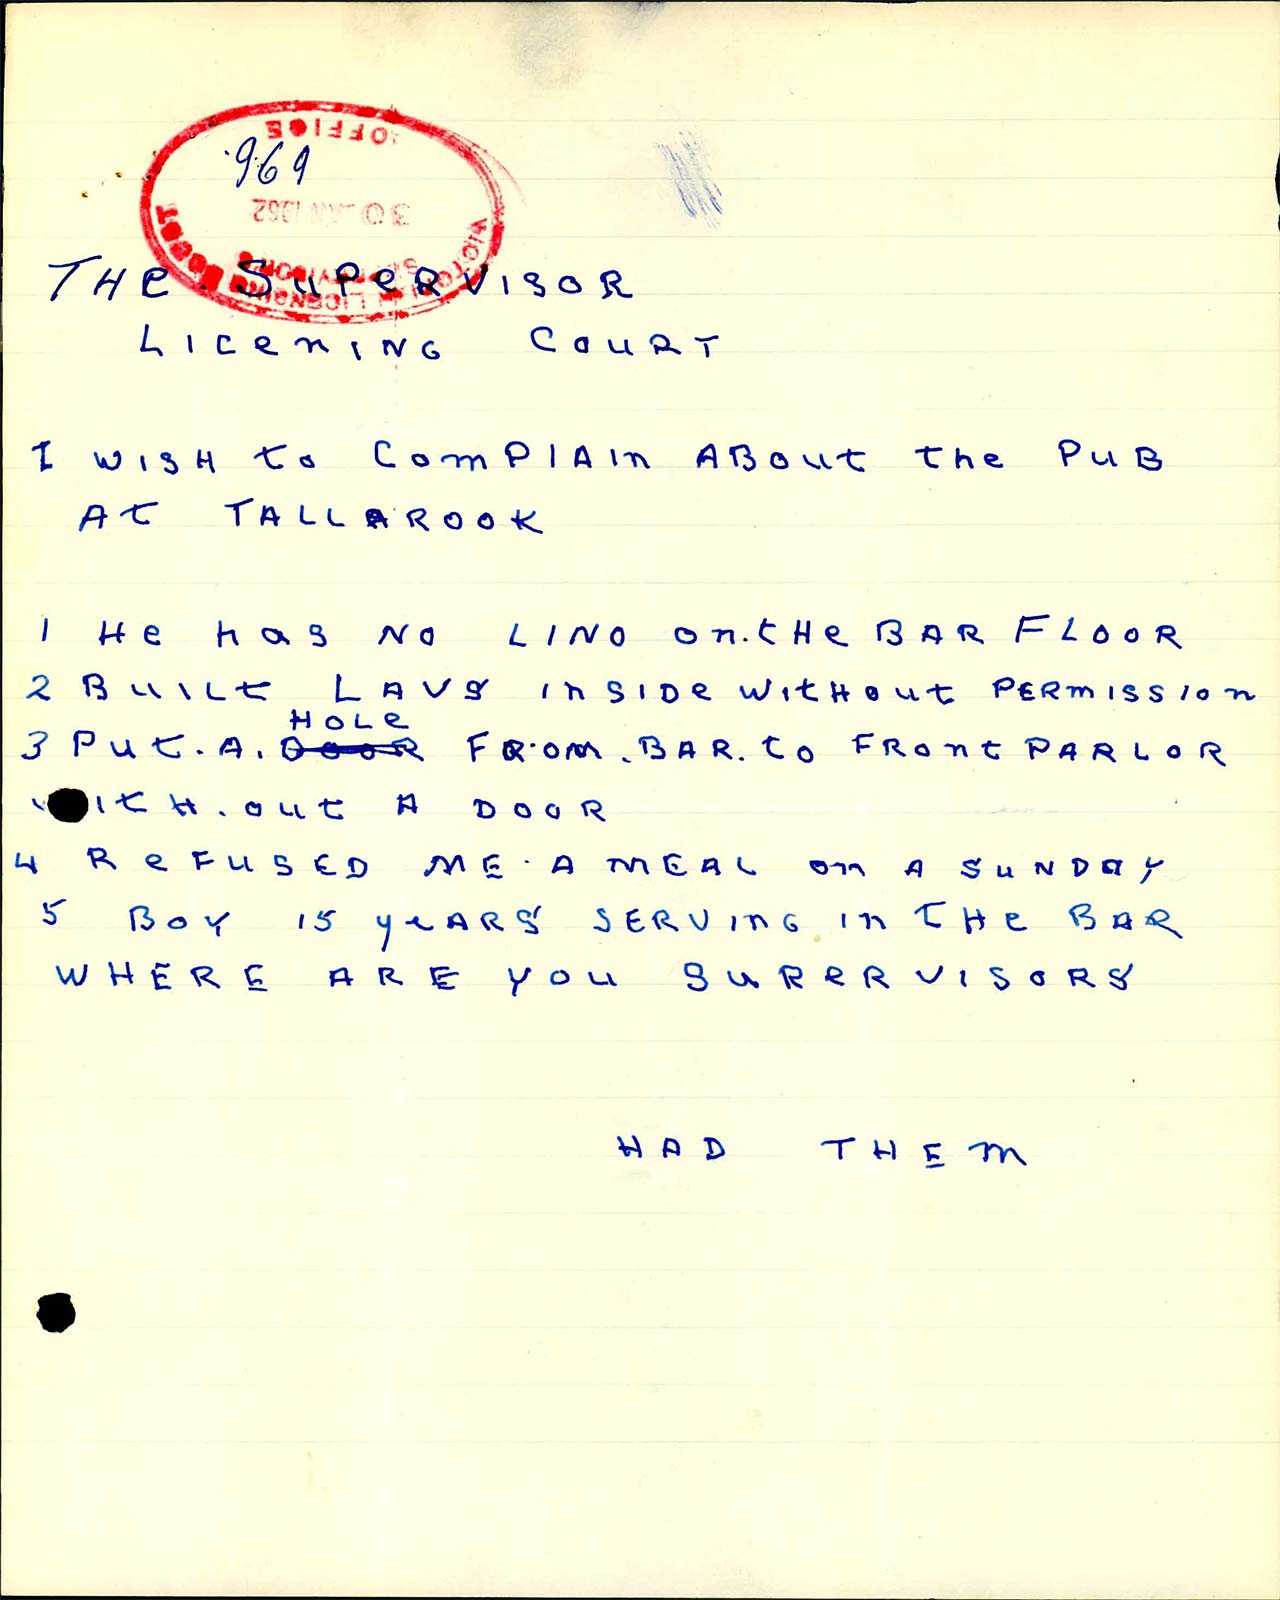 OFFICE
969
30 JAN 1962
VICTORIAN LICENSING COURT
SUPERVISORS
THe SuPeRVISOR
LICenING CouRT
I WISH to ComPlAIn ABout the PuB
At TALLAROOK
1 He has NO LINO on.tHe BAR FLOOR
2 BuILt LAVS InSIDe WItHout PERmISSIon
HOLe
3 Put.A. DOOR FROm.BAR.to FRont PARLOR
WItH.out A DOOR
4 ReFUSED ME.A MEAL on A SuNDAY
5 Boy 15 yeARS SERVInG In THe BAR
WHERE ARE YOu SuPeRVISORS
HAD THEm